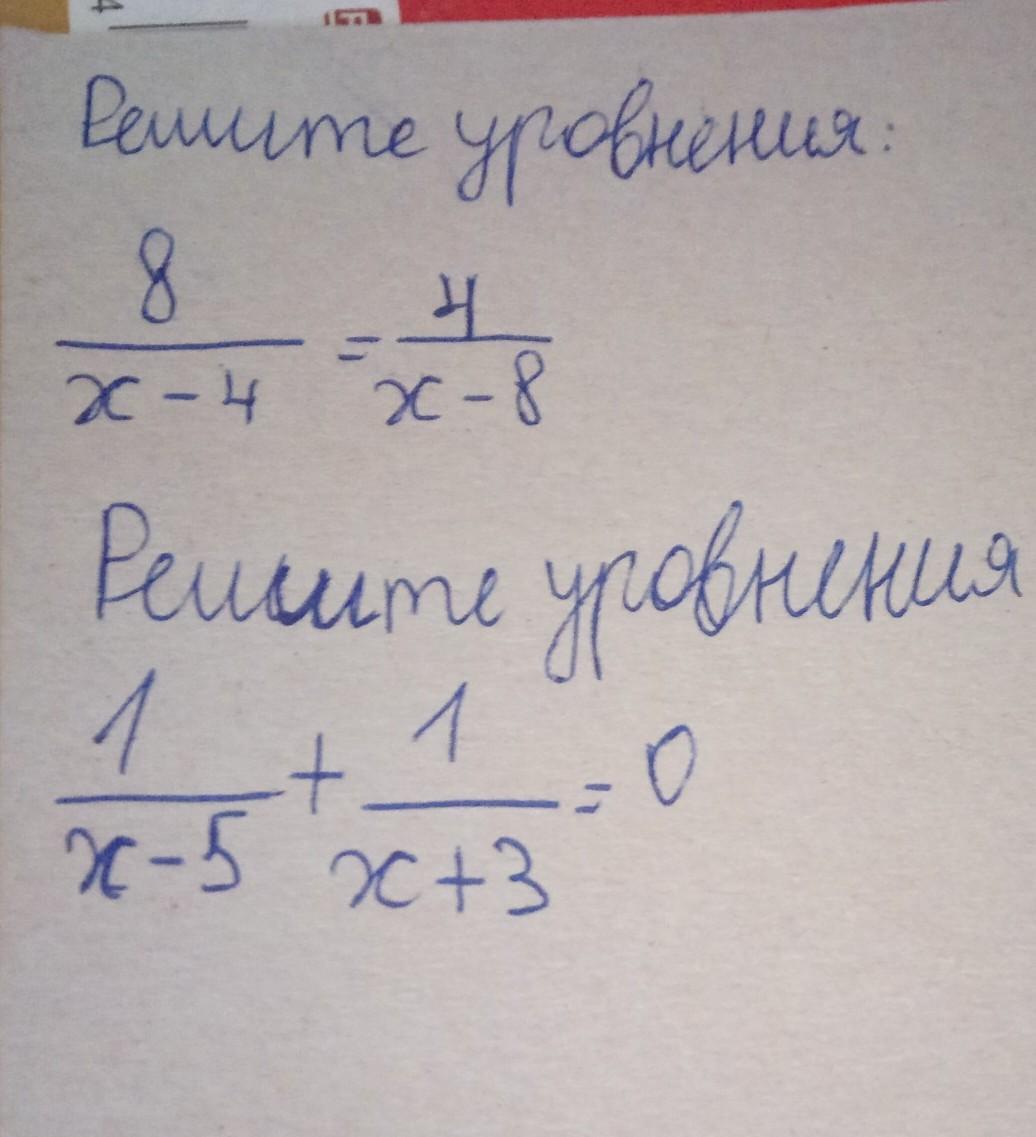 Решите уровнения:
8/(x-4) = 4/(x-8)
Решите уровнения
1/(x-5) + 1/(x+3) = 0